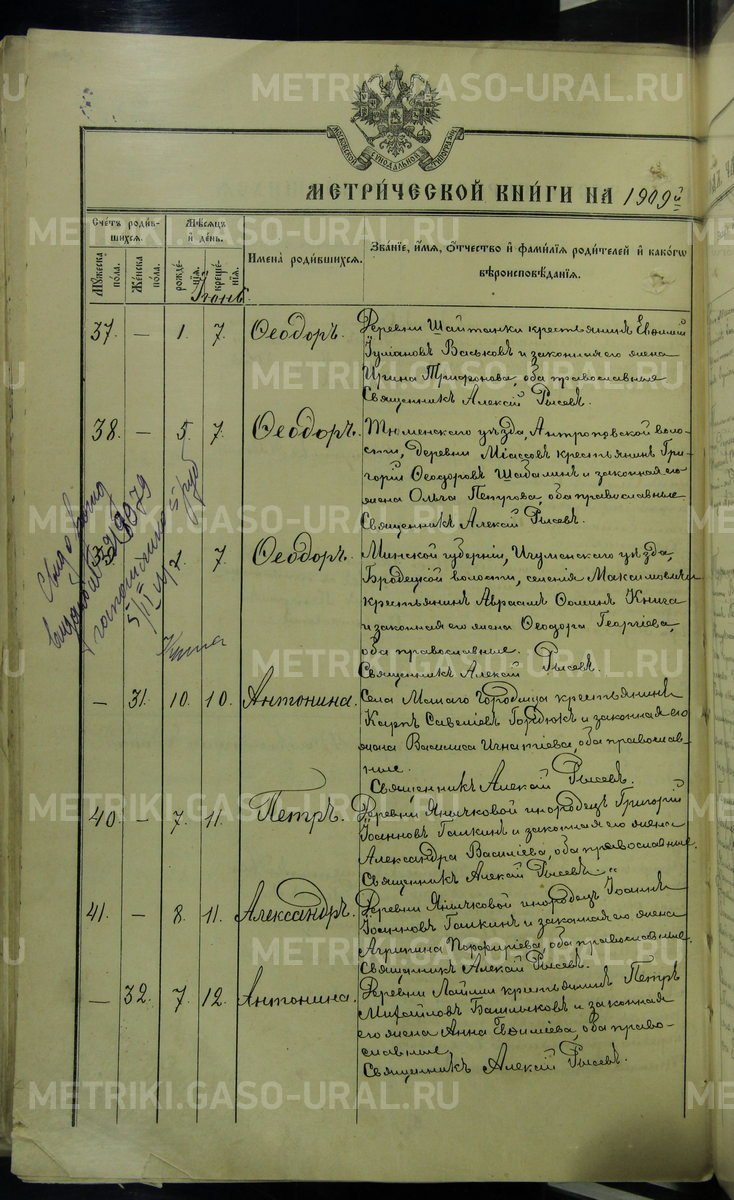 METRIKI.GASO-URAL.RU
МОСКОВСКОЙ СѴНОДАЛЬНОЙ ТИПОГРАФІИ
МЕТРИ́ЧЕСКОЙ КНИ́ГИ НА 1909й
Счетъ роди́вшихся.
Мꙋ́жеска по́ла.
Же́нска по́ла.
Мѣ́сяцъ и҆ де́нь.
рожде́нїѧ.
креще́нїѧ.
И҆мена̀ роди́вшихся.
Зва́нїе, и҆́мѧ, ѻ҆́тчество и҆ фами́лїѧ роди́телей и҆ како́гѡ
вѣроисповѣ́данїѧ.
Іюнь.
37. — 1. 7. Ѳеодоръ.
Деревни Шайтанки крестьянинъ Евѳимій
Васьковъ и законная его жена
Ирина Трифонова, оба православные
Священникъ Алексій Рысевъ.
38. — 5. 7. Ѳеодоръ.
Тюменскаго уѣзда, Антроповской воло-
сти, деревни Міассовъ крестьянинъ Гри-
горій Ѳеодоровъ Шабалинъ и законная его
жена Ольга Петрова, оба православные
Священникъ Алексій Рысевъ.
7 7 Ѳеодоръ.
Минской губерніи, Игуменскаго уѣзда,
Бродецкой волости, селенія Максимовичи
крестьянинъ Авраамъ Ѳоминъ Книга
и законная его жена Ѳеодора Георгіева,
оба православные.
Священникъ Алексій Рысевъ.
Книга
— 31. 10. 10. Антонина.
Села Малаго Городища крестьянинъ
Карпъ Савеліевъ Гордюкъ и законная его
жена Василиса Игнатіева, оба православ-
ные.
Священникъ Алексій Рысевъ.
40. — 7. 11. Петръ.
Деревни Янычковой инородецъ Григорій
Іоанновъ Галкинъ и законная его жена
Александра Василіева, оба православные.
Священникъ Алексій Рысевъ.
41. — 8. 11. Александръ.
Деревни Янычковой инородецъ Іоаннъ
Іоанновъ Галкинъ и законная его жена
Агрипина Порфиріева, оба православные.
Священникъ Алексій Рысевъ.
— 32. 7. 12. Антонина.
Деревни крестьянинъ Петръ
Михайловъ Башлыковъ и законная
его жена Анна Евѳиміева, оба право-
славные,
Священникъ Алексій Рысевъ.